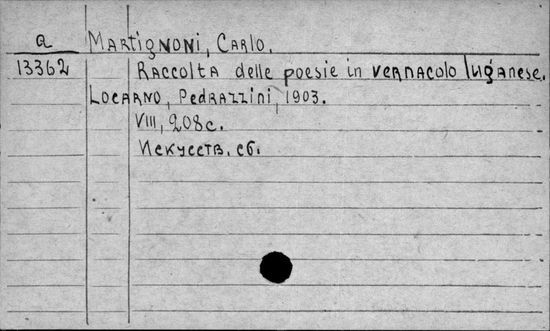 a Martignoni, Carlo.
13362 Raccolta delle poesie in vernacolo luganese.
Locarno, Pedrazzini, 1903.
VIII, 208 с.
Искусств. сб.